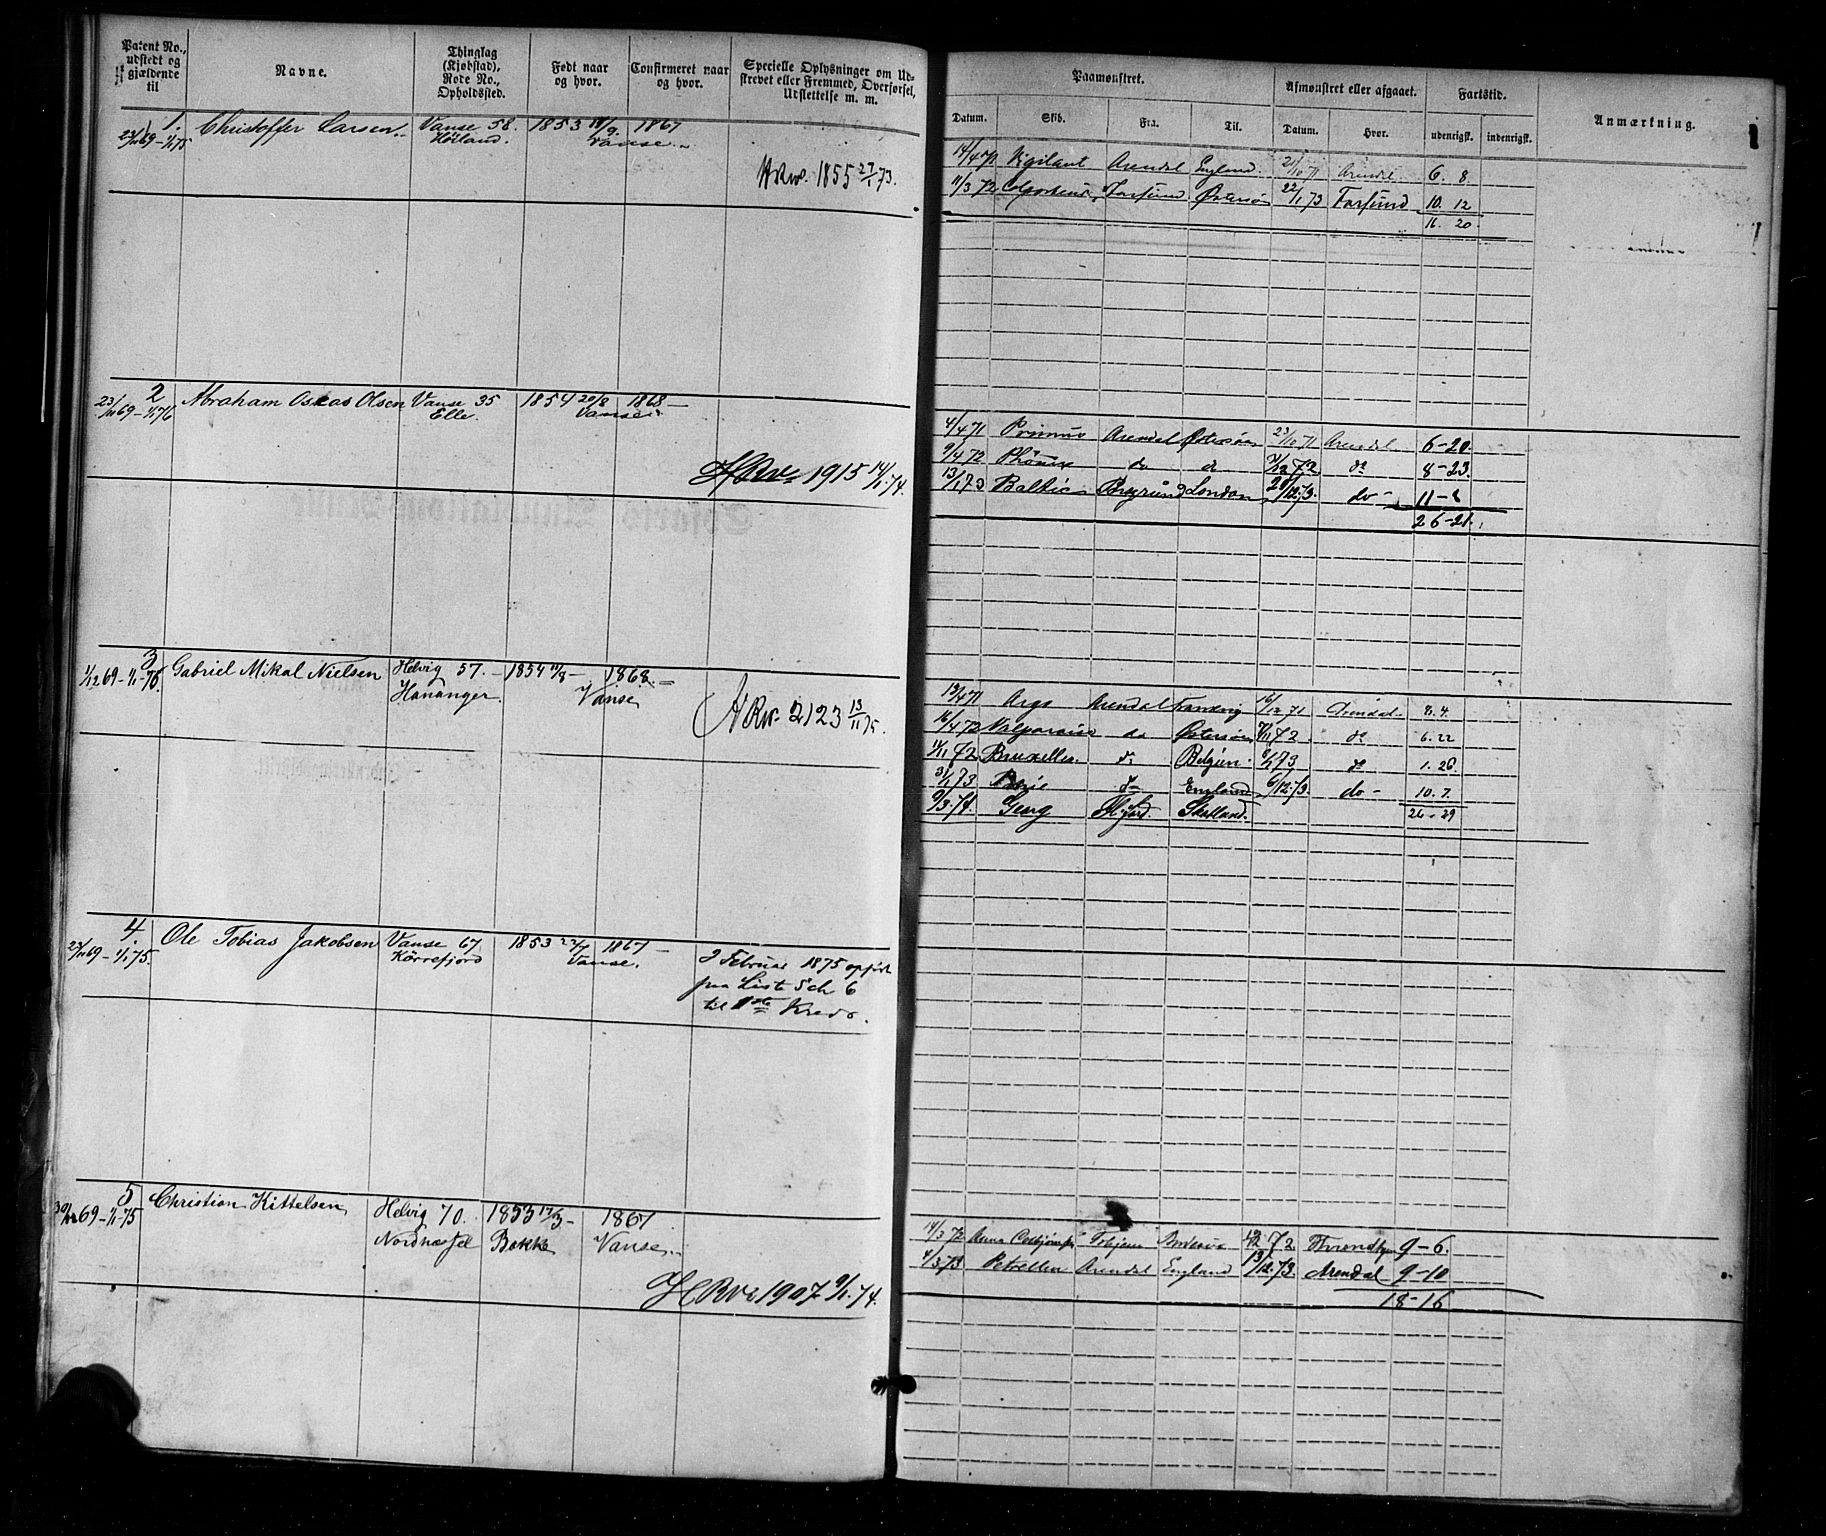 Patent No., udstedt og gjældende til
Navne.
Thinglag (Kjøbstad), Rode No., Opholdssted.
Født naar og hvor.
Confirmeret naar og hvor.
Specielle Oplysninger om Udskrevet eller Fremmed, Overførsel, Udslettelse m. m.
Paamønstret.
Afmønstret eller afgaaet.
Fartstid.
Anmærkning.
Datum. Skib. Fra. Til. Datum. Hvor. udenrigsk. indenrigsk.
1
1. Christoffer Larsen Vanse 58. 1853 1867
Høiland. Vanse
1855 27/1 73.
14/4 71 Vigilant Arendal England 21/10 71 Arendal 6. 8
11/3 72 Farsund Østersø 22/1 73 Farsund 10. 12
16. 20
2 Abraham Oskar Olsen Vanse 35 1854 20/8 1868
23/11 69 - 1/1 76 Elle. Vanse
1915 14/1 74.
4/4 71 Primus Arendal Østersøen 23/10 71 Arendal 6-20
9/4 72 Phönix do do 72 do 8-23
13/1 73 Baltic London 12.73. do 11-8
26-21.
3 Gabriel Mikal Nielsen Helvig 57. 1854 11/8 1868
1/12 69 - 1/1-76. Hananger Vanse
2123 13/11 75.
13/4 71 Argo Arendal 16/12 71 Arendal 8.4.
16/4 72 Valparaiso do Østersøen 72 do 6.22
72 Bruxelles do Belgien 73 do 1.26
73 do England 6/12 73 do 10.7.
9/3 74. Georg Skotland. 26-29
4. Ole Tobias Jakobsen Vanse 67 1853 1867
23/11 69 - 1/1 75. Kørrefjord Vanse.
2 Februar 1875 opført
paa Liste Sch 6
til 1ste Kreds.
5 Christian Kittelsen Helvig 70. 1853 1867
69 - 1/1-75 Bakke Vanse
1907 9/1. 74.
14/3 72 Anna 72 9-6.
4/3 73 Petrellen Arendal England 13/12 73 Arendal 9-10
18-16